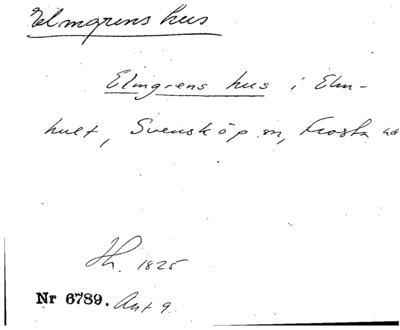 Elmgrens hus
Elmgrens hus i Elm-
hult, Svensköp sn, Frosta hd
Hh. 1825
Nr 6789. Ant 9.